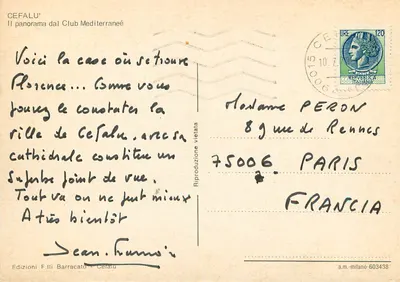 CEFALU'
Il panorama dal Club Mediterraneè
Voici la case où se trouve
Florence... Comme vous
pouvez le constater la
ville de Cefalu avec sa
cathédrale constitue un
superbe point de vue.
Tout va on ne peut mieux
A très bientôt
Jean-
Edizioni F.lli Barracato - Cefalù
Riproduzione vietata
120
Madame PERON
89 rue de Rennes
75006 PARIS
FRANCIA
a.m. milano 603438